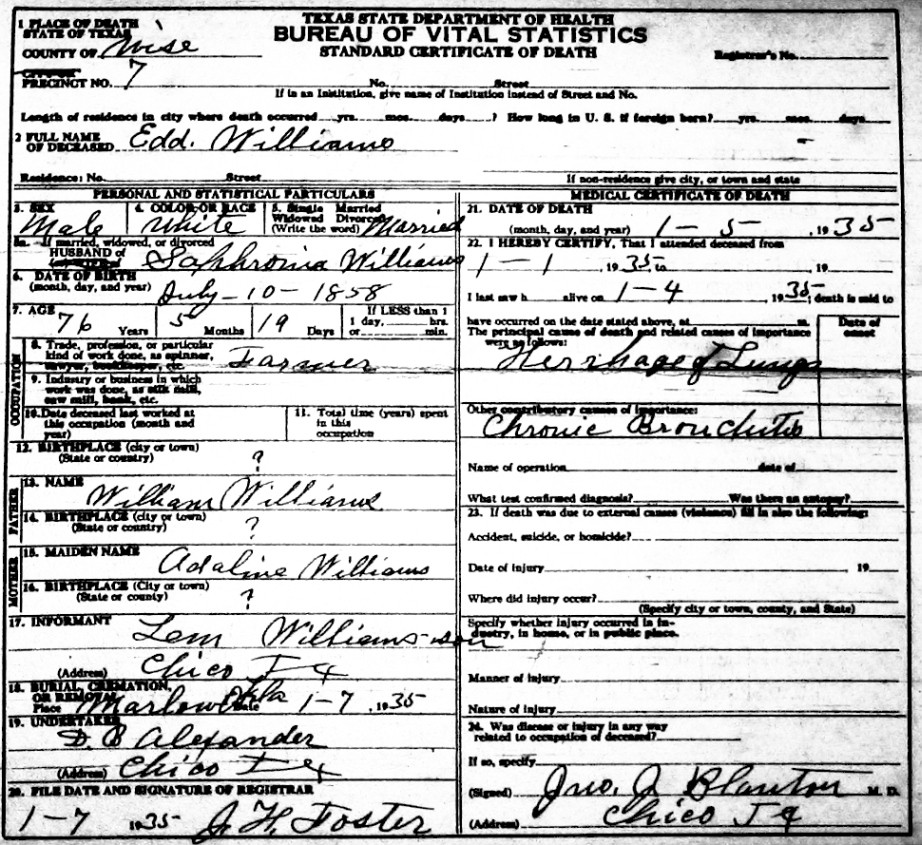 TEXAS STATE DEPARTMENT OF HEALTH
BUREAU OF VITAL STATISTICS
STANDARD CERTIFICATE OF DEATH
1 PLACE OF DEATH
STATE OF TEXAS
COUNTY OF Wise
Registrar's No.
PRECINCT NO. 7 No. Street
If in an Institution, give name of Institution instead of Street and No.
Length of residence in city where death occurred yrs. mos. days ? How long in U. S. if foreign born? yrs. mos. days
2 FULL NAME
OF DECEASED Edd. Williams
Residence: No. Street
If non-residence give city, or town and state
PERSONAL AND STATISTICAL PARTICULARS
3. SEX Male
4. COLOR OR RACE White
5. Single Married
Widowed Divorced
(Write the word) Married
5a. If married, widowed, or divorced
HUSBAND of Saphronia Williams
6. DATE OF BIRTH
(month, day, and year) July-10-1858
7. AGE 76 Years 5 Months 19 Days
If LESS than 1
1 day, hrs.
or min.
OCCUPATION
8. Trade, profession, or particular
kind of work done, as spinner,
sawyer, bookkeeper, etc. Farmer
9. Industry or business in which
work was done, as silk mill,
saw mill, bank, etc.
10. Date deceased last worked at
this occupation (month and
year)
11. Total time (years) spent
in this
occupation
12. BIRTHPLACE (city or town)
(State or country) ?
FATHER
13. NAME William Williams
14. BIRTHPLACE (city or town)
(State or country) ?
MOTHER
15. MAIDEN NAME Adaline Williams
16. BIRTHPLACE (City or town)
(State or county) ?
17. INFORMANT Lem Williams-son
(Address) Chico Tex
18. BURIAL, CREMATION,
OR REMOVAL
Place Marlow Okla Date 1-7, 1935
19. UNDERTAKER
D. B Alexander
(Address) Chico Tex
20. FILE DATE AND SIGNATURE OF REGISTRAR
1-7 1935 J. H. Foster
MEDICAL CERTIFICATE OF DEATH
21. DATE OF DEATH
(month, day, and year) 1-5, 1935
22. I HEREBY CERTIFY, That I attended deceased from
1-1, 1935 to , 19
I last saw h alive on 1-4, 1935; death is said to
have occurred on the date stated above, at m.
The principal cause of death and related causes of importance
were as follows:
Date of
onset
Herrhage of Lungs
Other contributory causes of importance:
Chronic Bronchitis
Name of operation date of
What test confirmed diagnosis? Was there an autopsy?
23. If death was due to external causes (violence) fill in also the following:
Accident, suicide, or homicide?
Date of injury 19
Where did injury occur?
(Specify city or town, county, and State)
Specify whether injury occurred in in-
dustry, in home, or in public place.
Manner of injury
Nature of injury
24. Was disease or injury in any way
related to occupation of deceased?
If so, specify
(Signed) Jno. J. Blanton M. D.
(Address) Chico Tex